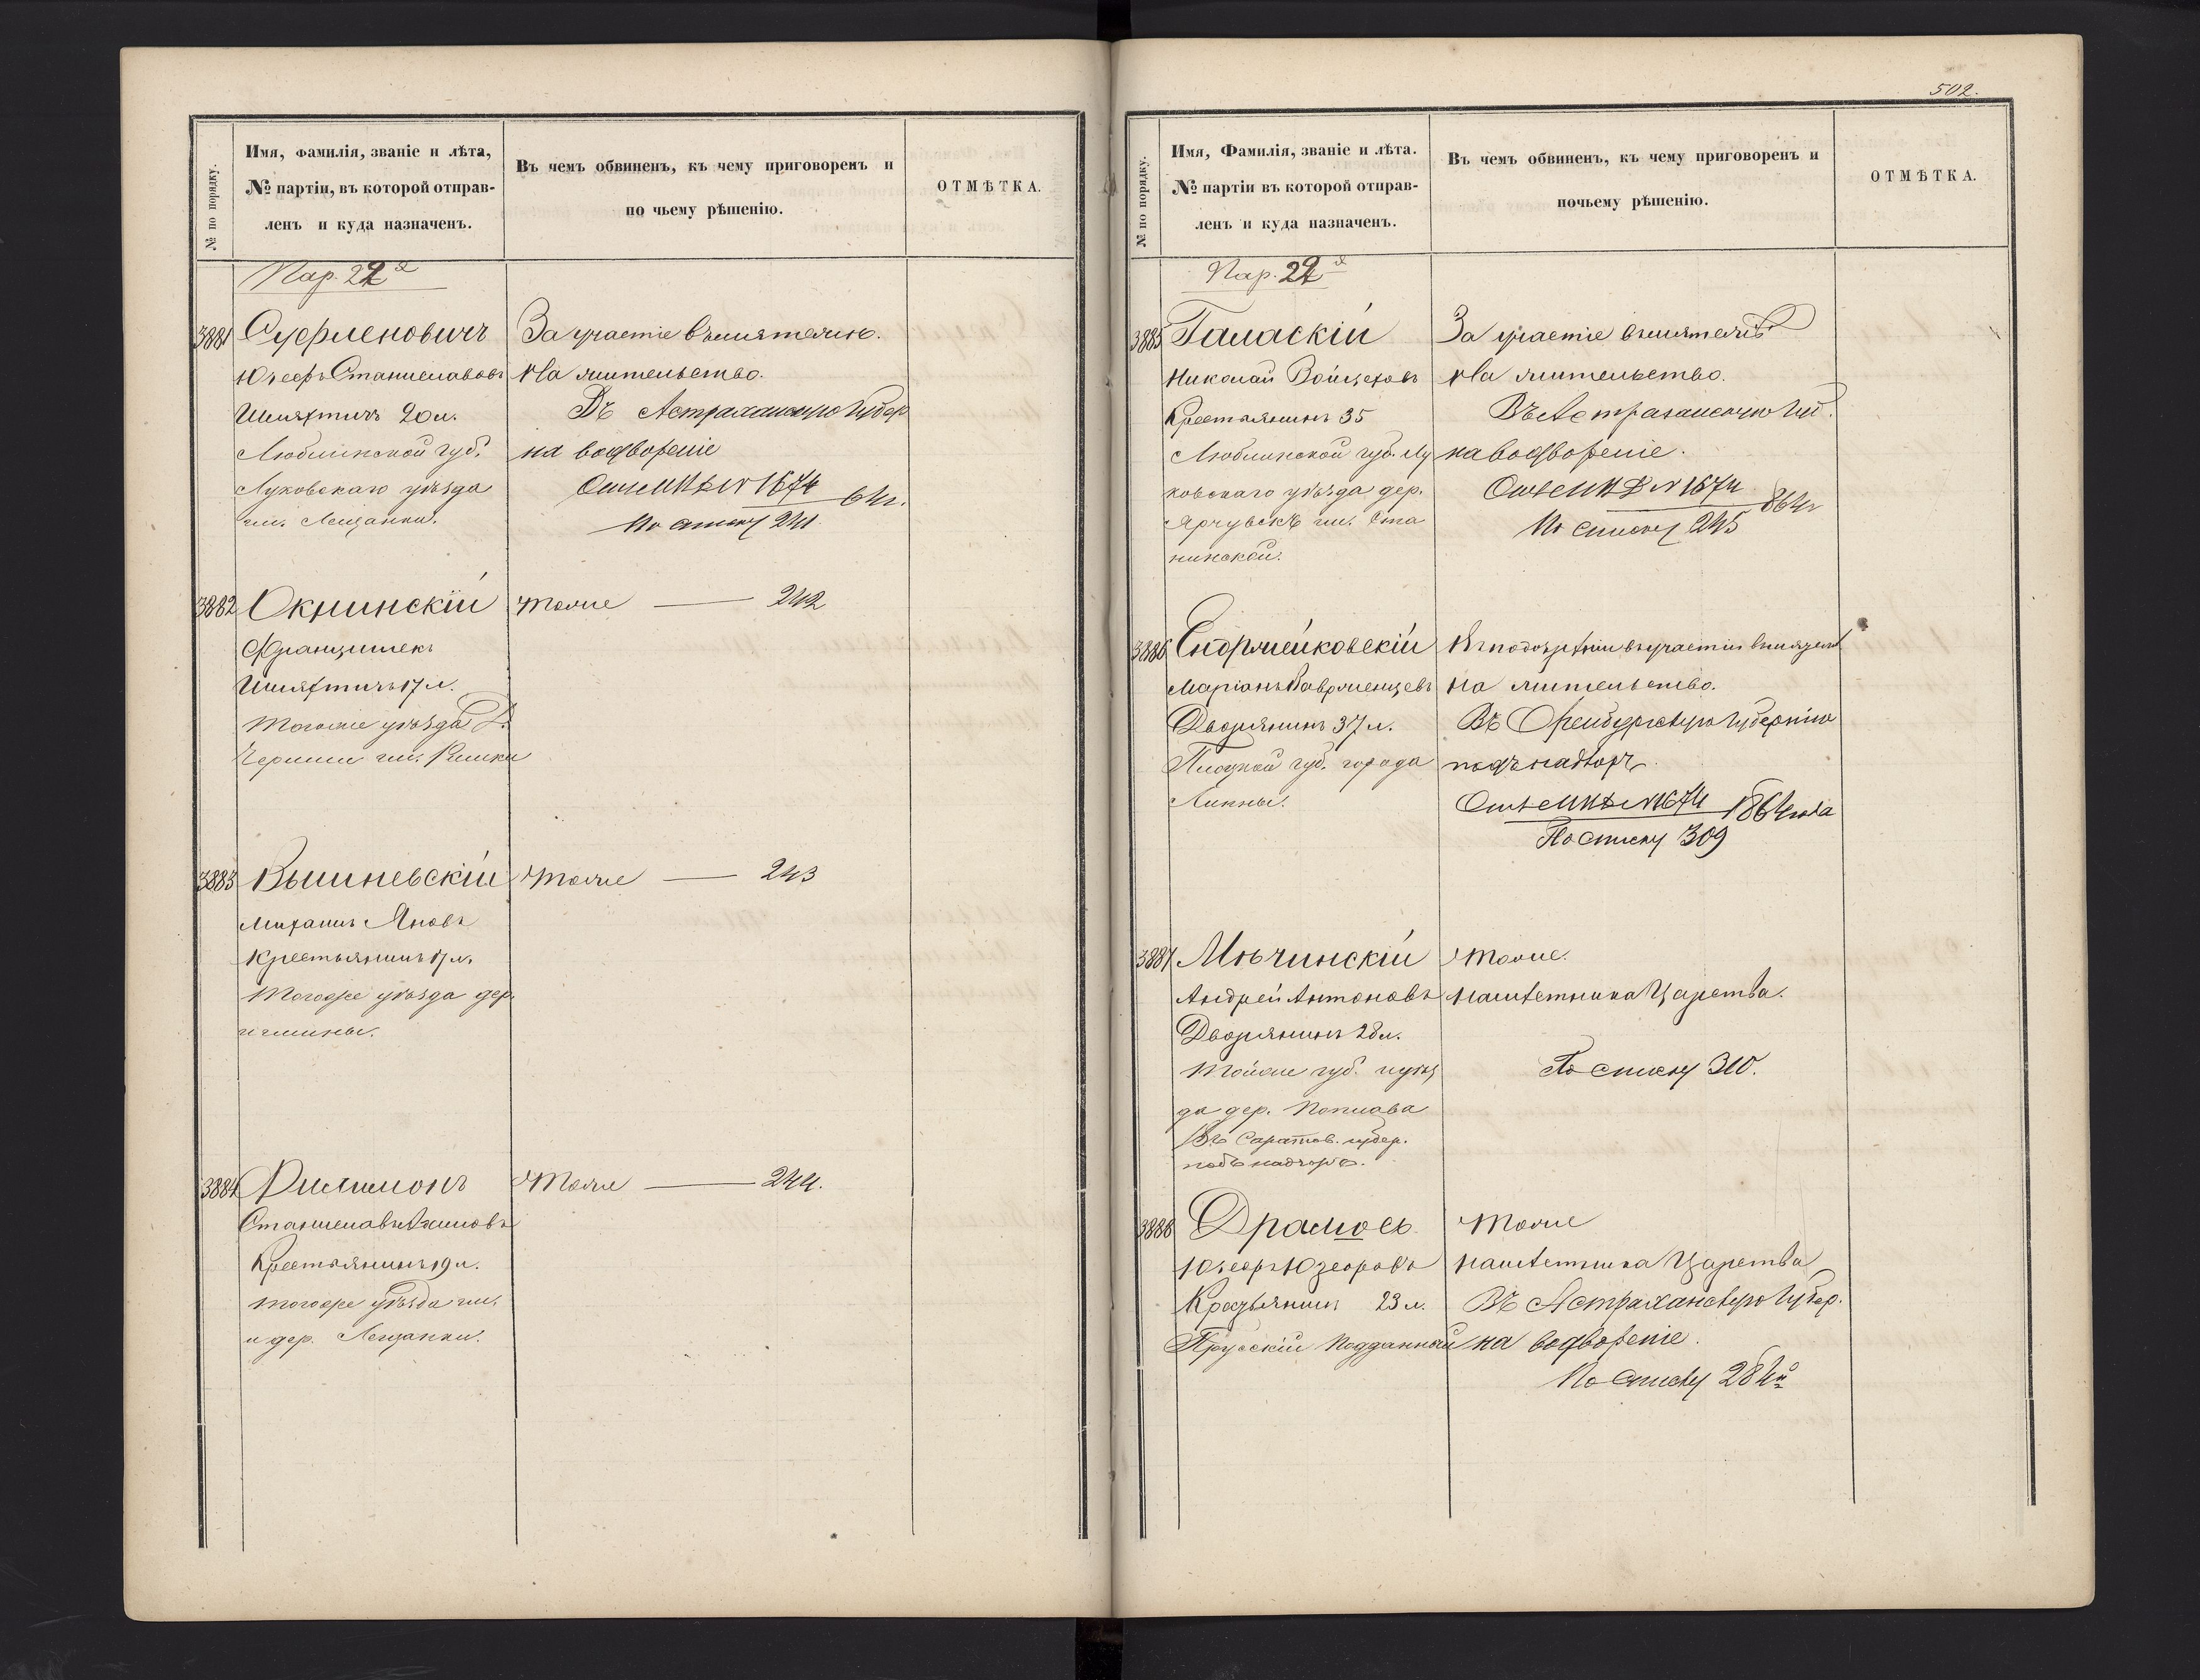 № по порядку.
Имя, Фамилія, званіе и лѣта,
№ партіи, въ которой отправ-
ленъ и куда назначенъ.
Въ чемъ обвиненъ, къ чему приговоренъ и
по чьему рѣшенію.
ОТМѢТКА.
Пар. 22я
3881
Юзефъ Станиславовъ
Шляхтичъ 20 л.
Люблинской губ.
Луковскаго уѣзда
гм. Лещанки.
За участіе въ мятежѣ.
На жительство.
Въ Астраханскую Губер
на водвореніе
№ 1674
64 г.
По списку 241.
3882 Окнинскій
Францишекъ
Шляхтичъ 17 л.
Тогоже уѣзда Д.
тоже — 242
3883 Вышневскій
Михаилъ Яновъ
Крестьянинъ 17 л.
Тогоже уѣзда дер.
и гмины.
тоже — 243
3884
Станиславъ
Крестьянинъ 19 л.
тогоже уѣзда гм.
и дер. Лещанки.
Тоже — 244.
502.
№ по порядку.
Имя, Фамилія, званіе и лѣта.
№ партіи въ которой отправ-
ленъ и куда назначенъ.
Въ чемъ обвиненъ, къ чему приговоренъ и
почьему рѣшенію.
ОТМѢТКА.
Пар. 22я
3885 Галаскій
Николай Войцеховъ
Крестьянинъ 35
Люблинской губ. Лу
ковскаго уѣзда дер.
гм. Ста
нинской.
За участіе въ мятежѣ
На жительство.
Въ Астраханскую Губ.
на водвореніе.
№ 1674
864 г
По списку 245
3886 Ендржейковскій
Маріанъ Ваврженцевъ
Дворянинъ 37 л.
Плоцкой губ. города
Липны.
По подозрѣнію въ участіи въ мятежѣ
На жительство.
Въ Оренбургскую Губернію
подъ надзоръ.
№ 1674
1864 года
По списку 309
3887 Мѣчинскій
Андрей Антоновъ
Дворянинъ 28 л.
Тойже губ. и уѣз
да дер. Поплава
Въ Саратов. губер.
подъ надзоръ.
Тоже.
Намѣстника Царства.
По списку 310.
3888
Юзефъ Юзефовъ
Крестьянинъ 23 л.
Прусскій подданный
Тоже
Намѣстника Царства
Въ Астраханскую Губер.
на водвореніе.
По списку 284